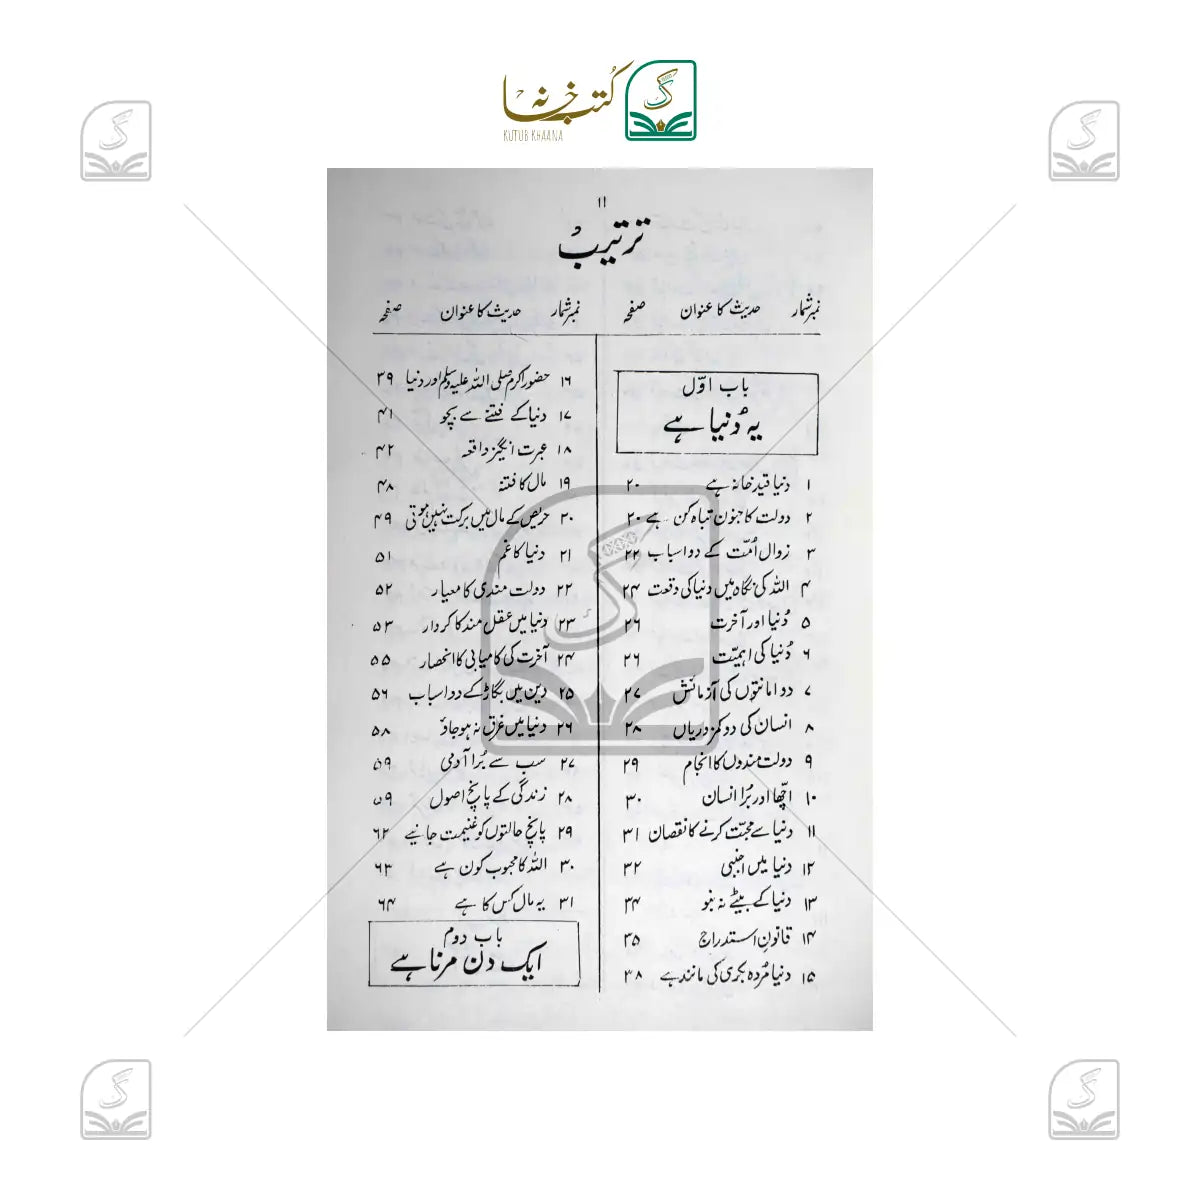 کتب خانہ
KUTUB KHAANA
۱۱
ترتیب
نمبر شمار حدیث کا عنوان صفحہ
باب اوّل
یہ دُنیا ہے
۱ دنیا قید خانہ ہے ۲۰
۲ دولت کا جنون تباہ کن ہے ۲۰
۳ زوال اُمّت کے دو اسباب ۲۲
۴ اللہ کی نگاہ میں دنیا کی وقعت ۲۴
۵ دُنیا اور آخرت ۲۶
۶ دُنیا کی اہمیّت ۲۶
۷ دو امانتوں کی آزمائش ۲۷
۸ انسان کی دو کمزوریاں ۲۸
۹ دولت مندوں کا انجام ۲۹
۱۰ اچّھا اور بُرا انسان ۳۰
۱۱ دنیا سے محبّت کرنے کا نقصان ۳۱
۱۲ دنیا میں اجنبی ۳۲
۱۳ دنیا کے بیٹے نہ بنو ۳۴
۱۴ قانونِ استدراج ۳۵
۱۵ دنیا مُردہ بکری کی مانند ہے ۳۸
نمبر شمار حدیث کا عنوان صفحہ
۱۶ حضور اکرم صلی اللہ علیہ وسلم اور دنیا ۳۹
۱۷ دنیا کے فتنے سے بچو ۴۱
۱۸ عبرت انگیز واقعہ ۴۲
۱۹ مال کا فتنہ ۴۸
۲۰ حریص کے مال میں برکت نہیں ہوتی ۴۹
۲۱ دنیا کا غم ۵۱
۲۲ دولت مندی کا معیار ۵۲
۲۳ دنیا میں عقل مند کا کردار ۵۳
۲۴ آخرت کی کامیابی کا انحصار ۵۵
۲۵ دین میں بگاڑ کے دو اسباب ۵۶
۲۶ دنیا میں غرق نہ ہو جاؤ ۵۸
۲۷ سب سے بُرا آدمی ۵۹
۲۸ زندگی کے پانچ اصول ۵۹
۲۹ پانچ حالتوں کو غنیمت جانیے ۶۲
۳۰ اللہ کا محبوب کون ہے ۶۳
۳۱ یہ مال کس کا ہے ۶۴
باب دوم
ایک دن مرنا ہے